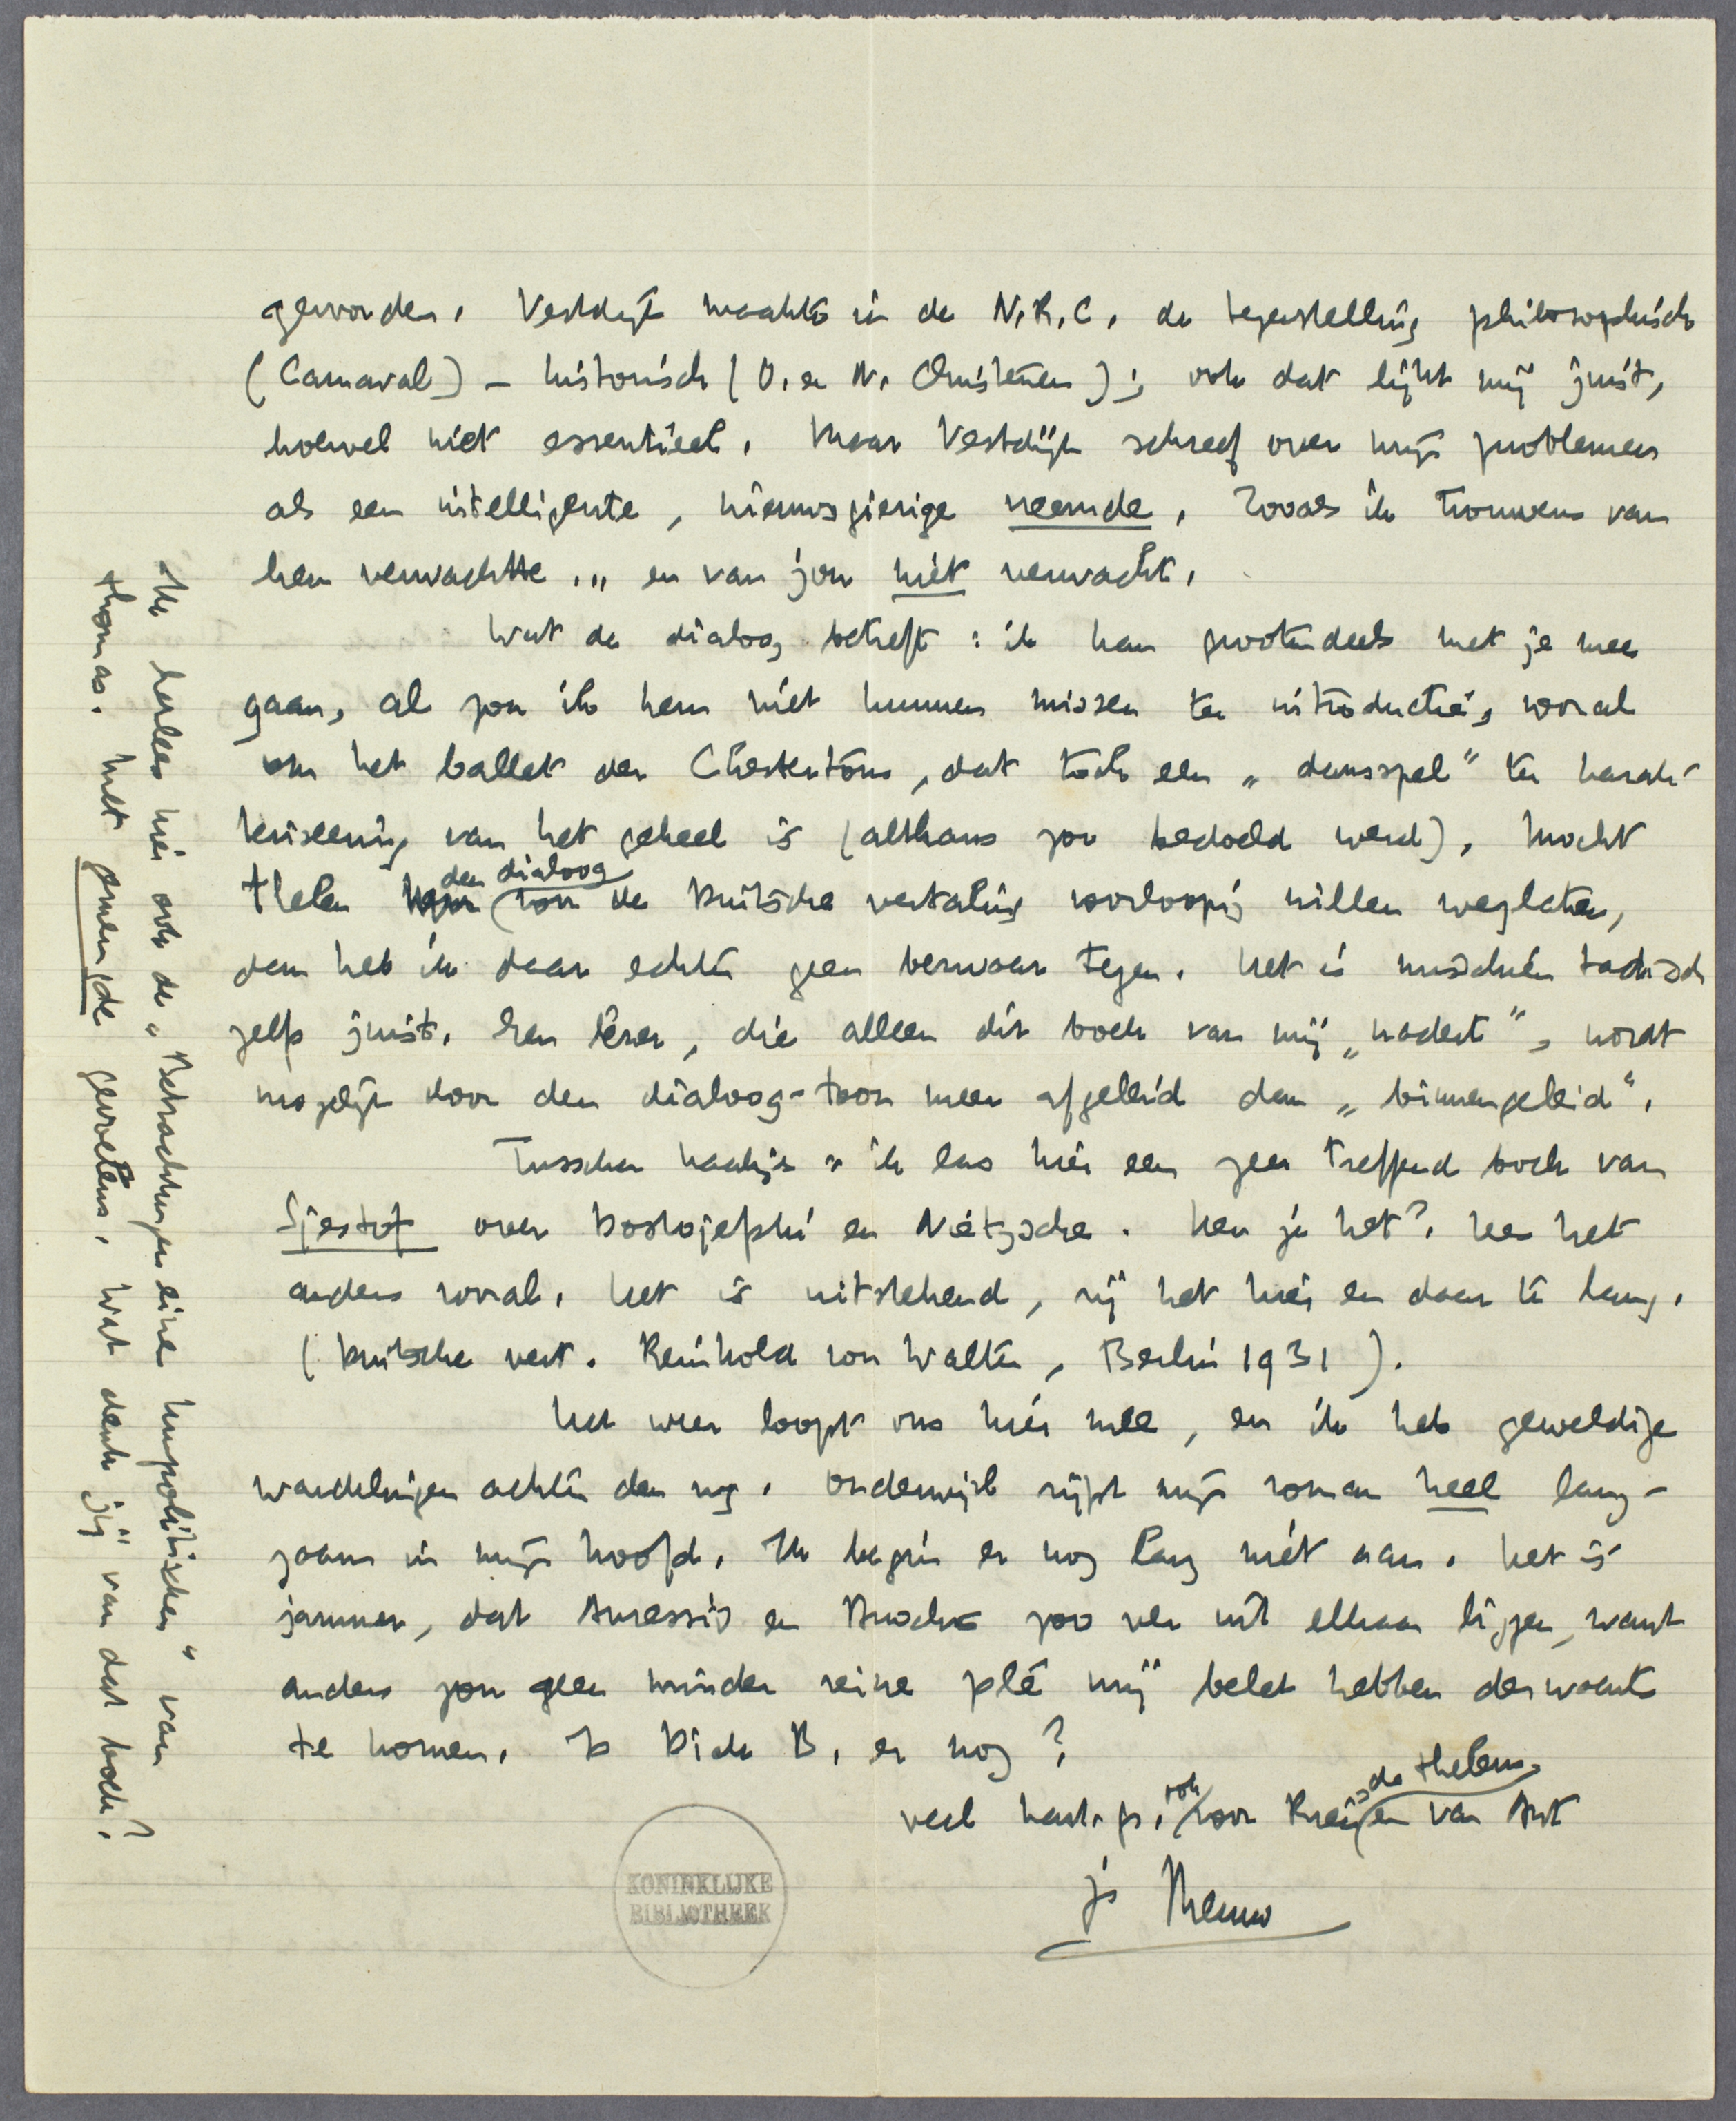 geworden. Vestdijk maakte in de N.R.C. de tegenstelling philosophisch
(Carnaval) – historisch (O. en N. Christenen); ook dat lijkt mij juist,
hoewel niet essentieel. Maar Vestdijk schreef over mijn problemen
als een intelligente, nieuwsgierige vreemde. Zooals ik trouwens van
hem verwachtte... en van jou niet verwacht.
Wat de dialoog betreft: ik kan grootendeels met je mee
gaan, al zou ik hem niet kunnen missen ter introductie, vooral
om het ballet der Chestertons, dat toch een „dansspel" ter karak-
teriseering van het geheel is (althans zoo bedoeld werd). Mocht
Thelen den dialoog voor de Duitsche vertaling voorloopig willen weglaten,
dan heb ik daar echter geen bezwaar tegen. Het is misschien tactisch
zelfs juist. Een lezer, die alleen dit boek van mij „nadert", wordt
mogelijk door den dialoog-toon meer afgeleid dan „binnengeleid".
Tusschen haakjes: ik las hier een zeer treffend boek van
Sjestof over Dostojefski en Nietzsche. Ken je het? Lees het
anders vooral. Het is uitstekend, zij het hier en daar te lang.
(Duitsche vert. Reinhold von Walter, Berlin 1931).
Het weer loopt ons hier mee, en ik heb geweldige
wandelingen achter den rug. Onderwijl rijpt mijn roman heel lang-
zaam in mijn hoofd. Ik begin er nog lang niet aan. Het is
jammer, dat Auressio en zoo ver uit elkaar liggen, want
anders zou geen minder reine plé mij belet hebben derwaarts
te komen. Is Dick B. er nog?
veel hart. gr., ook voor de Thelens en van Ant
je Menno
Ik herlees hier ook de „Betrachtungen eines Unpolitischen" van
Thomas. Met gemengde gevoelens. Wat denk jij van dat boek?
KONINKLIJKE
BIBLIOTHEEK